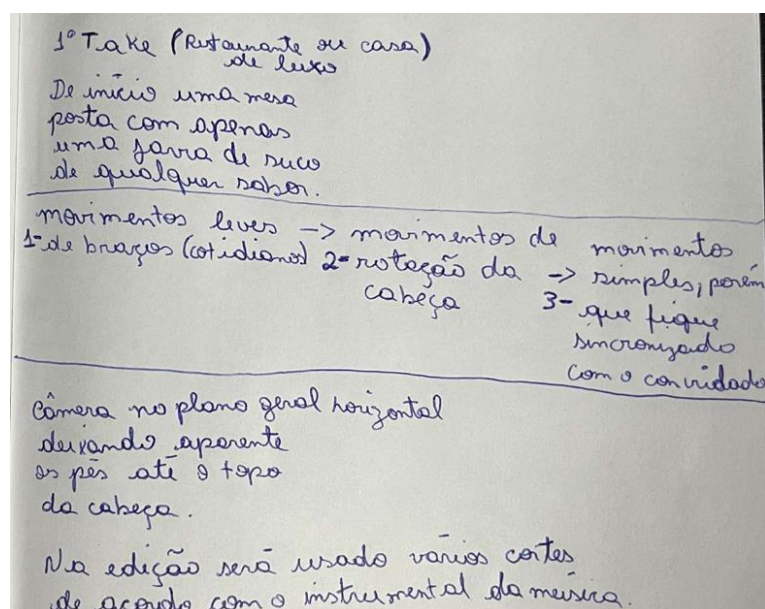 1º Take (Restaurante ou casa)
de luxo
De início uma mesa
posta com apenas
uma jarra de suco
de qualquer sabor.
movimentos leves -> movimentos de movimentos
1- de braços (cotidianos) 2- rotação da -> simples, porém
cabeça 3- que fique
sincronizado
com o convidado
câmera no plano geral horizontal
deixando aparente
os pés até o topo
da cabeça.
Na edição será usado vários cortes
de acordo com o instrumental da música.